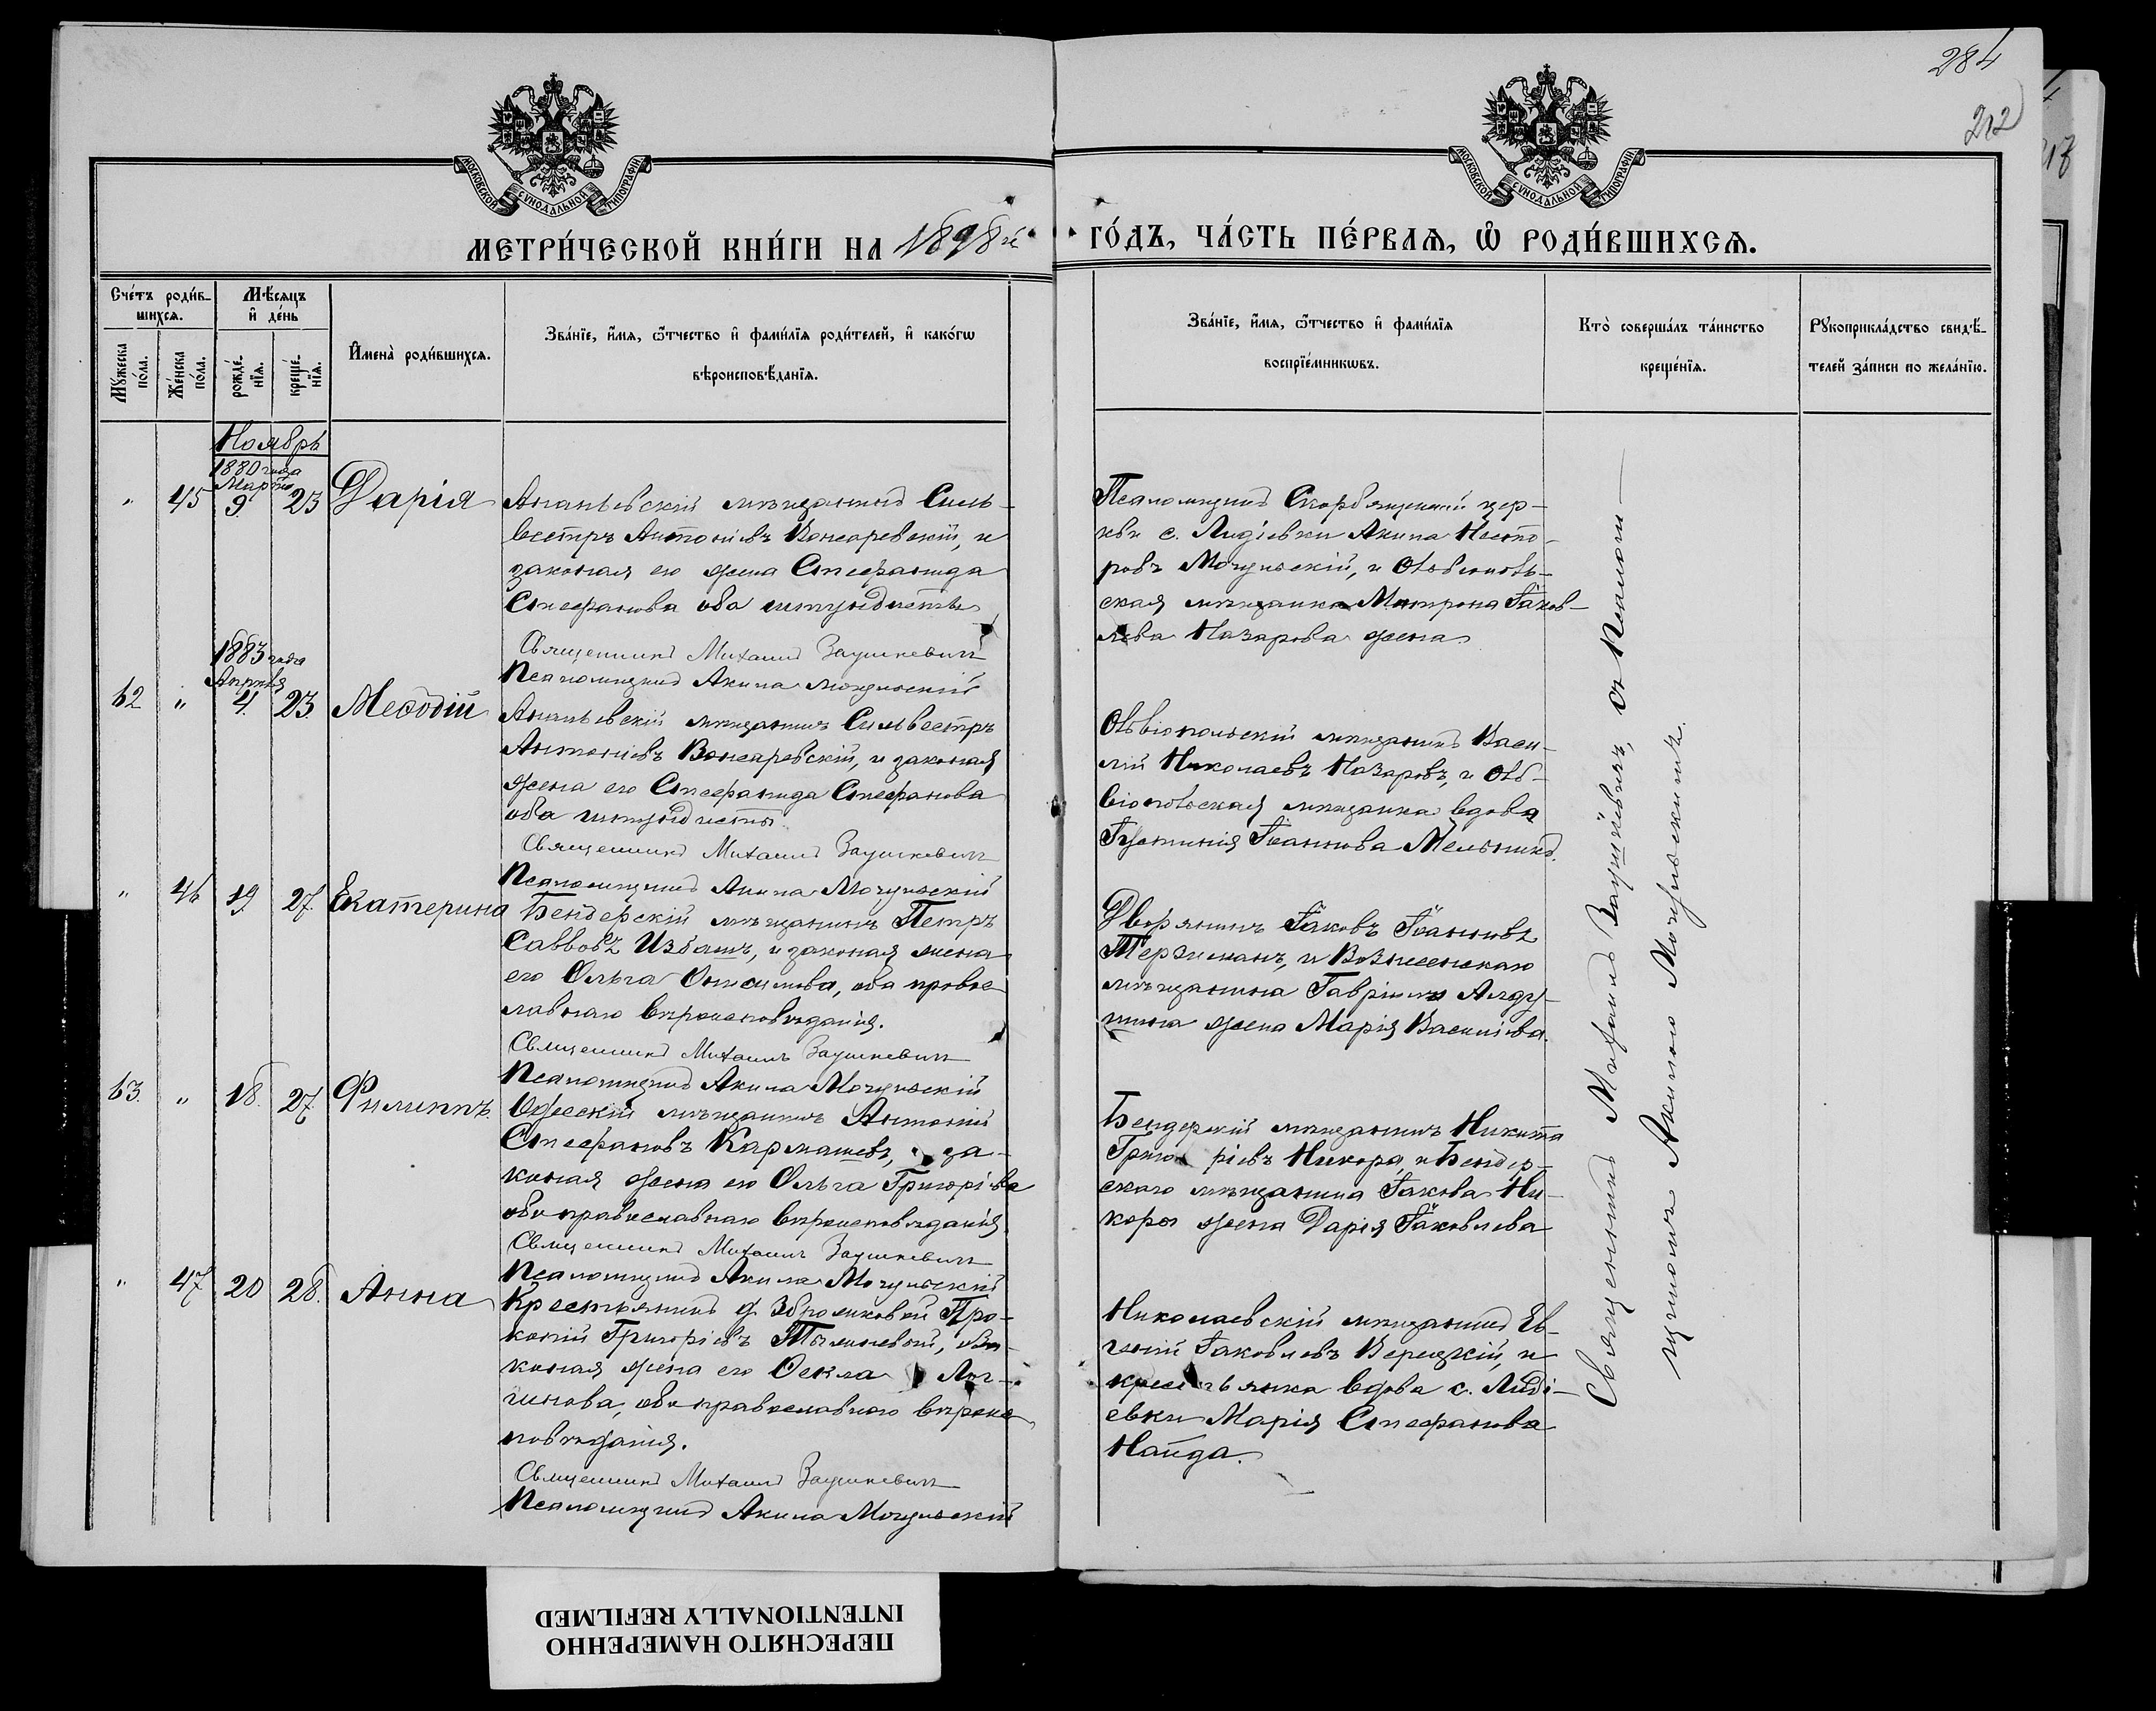 284
212
МОСКОВСКОЙ СѴНОДАЛЬНОЙ ТИПОГРАФІИ
МОСКОВСКОЙ СѴНОДАЛЬНОЙ ТИПОГРАФІИ
МЕТРИ́ЧЕСКОЙ КНИ́ГИ НА 1898й
ГО́ДЪ, ЧА́СТЬ ПЕ́РВАЯ, Ѡ РОДИ́ВШИХСЯ.
Сче́тъ роди́в-
шихся.
Му́жеска по́ла.
Же́нска по́ла.
Мѣ́сяцъ
и де́нь
рожде́-
нїя.
креще́-
нїя.
Имена̀ роди́вшихся.
Зва́нїе, и́мя, ѻ́тчество и фами́лїя роди́телей, и како́гѡ
вѣроисповѣ́данїя.
Зва́нїе, и́мя, ѻ́тчество и фами́лїя
воспрїе́мникѡвъ.
Кто̀ соверша́лъ та́инство
креще́нїя.
Рꙋкоприкла́дство свидѣ́-
телей за́писи по жела́нїю.
Ноябрь
1880 года
Марта
" 45 9. 23 Дарія
Ананьевскій мѣщанинъ Силь-
вестръ Антоніевъ Вонсаревскій, и
законая его жена Стефанида
Стефанова оба штундисты
Священникъ Михаилъ Заушкевичъ
Псаломщикъ Акила Мочульскій
Псаломщикъ Скорбященской цер-
кви с. Лидіевки Акила Несто-
ровъ Мочульскій, и Овидіополь-
ская мѣщанка Матрона Іаков-
лева Назарова жена
1883 года
Апрѣля
62 " 4. 23. Меѳодій
Ананьевскій мѣщанинъ Сильвестръ
Антоніевъ Вонсаревскій, и законая
жена его Стефанида Стефанова
оба штундисты
Священникъ Михаилъ Заушкевичъ
Псаломщикъ Акила Мочульскій
мѣщанинъ Васи-
лій Николаевъ Назаровъ, и
мѣщанка вдова
Іустинія Іоаннова Мельникъ.
" 46 19. 27. Екатерина
Бендерскій мѣщанинъ Петръ
Саввовъ Избашъ, и законая жена
его Ольга Онисимова, оба право-
славнаго вѣроисповѣданія.
Священникъ Михаилъ Заушкевичъ
Псаломщикъ Акила Мочульскій
Дворянинъ Іаковъ Іоанновъ
Терзиманъ, и Вознесенскаго
мѣщанина Гавріила Алду-
шина жена Марія Василіева.
63. " 18. 27. Филиппъ
Одесскій мѣщанинъ Антоній
Стефановъ Кармашевъ, и за-
коная жена его Ольга Григоріева
оба православнаго вѣроисповѣданія
Священникъ Михаилъ Заушкевичъ
Псаломщикъ Акила Мочульскій
Бендерскій мѣщанинъ Никита
Григоріевъ Никора, и Бендер-
скаго мѣщанина Іакова Ни-
коры жена Дарія Іаковлева
" 47 20 28. Анна
Крестьянинъ Про-
копій Григоріевъ и за-
коная жена его Ѳекла Лог-
гинова, оба православнаго вѣроис-
повѣданія.
Священникъ Михаилъ Заушкевичъ
Псаломщикъ Акила Мочульскій
Николаевскій мѣщанинъ Ев-
геній Іаковлевъ Верецкій, и
крестьянка вдова с. Лиді-
евки Марія Стефанова
Найда.
Священникъ Михаилъ Заушкевичъ, съ Псалом-
щикомъ Акилою Мочульскимъ.
ПЕРЕСНЯТО НАМЕРЕННО
INTENTIONALLY REFILMED